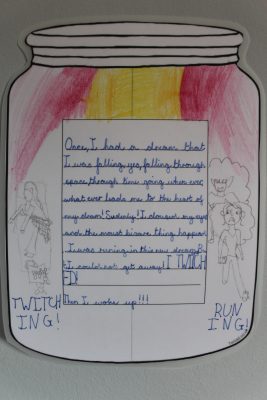 Once, I had a dream that
I was falling, yes, falling through
space through time going when ever,
what ever leads me to the heart of
my dream! Sudenly! I
my eyes
and the most bizare thing happen
I was runing in this new dream B
t I could not get away! I TWITCH
ED!
Then I woke up!!!
TWITCH
ING!
RUN
ING!